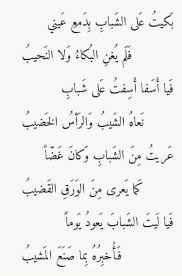 بَكَيْتُ عَلَى الشَّبَابِ بِدَمْعِ عَيْنِي
فَلَمْ يُغْنِ البُكَاءُ وَلا النَّحِيبُ
فَيَا أَسَفَا أَسِفْتُ عَلَى شَبَابٍ
نَعَاهُ الشَّيْبُ وَالرَّأْسُ الخَضِيبُ
عَرِيتُ مِنَ الشَّبَابِ وَكَانَ غَضًّا
كَمَا يَعْرَى مِنَ الوَرَقِ القَضِيبُ
فَيَا لَيْتَ الشَّبَابَ يَعُودُ يَوْماً
فَأُخْبِرُهُ بِمَا صَنَعَ المَشِيبُ